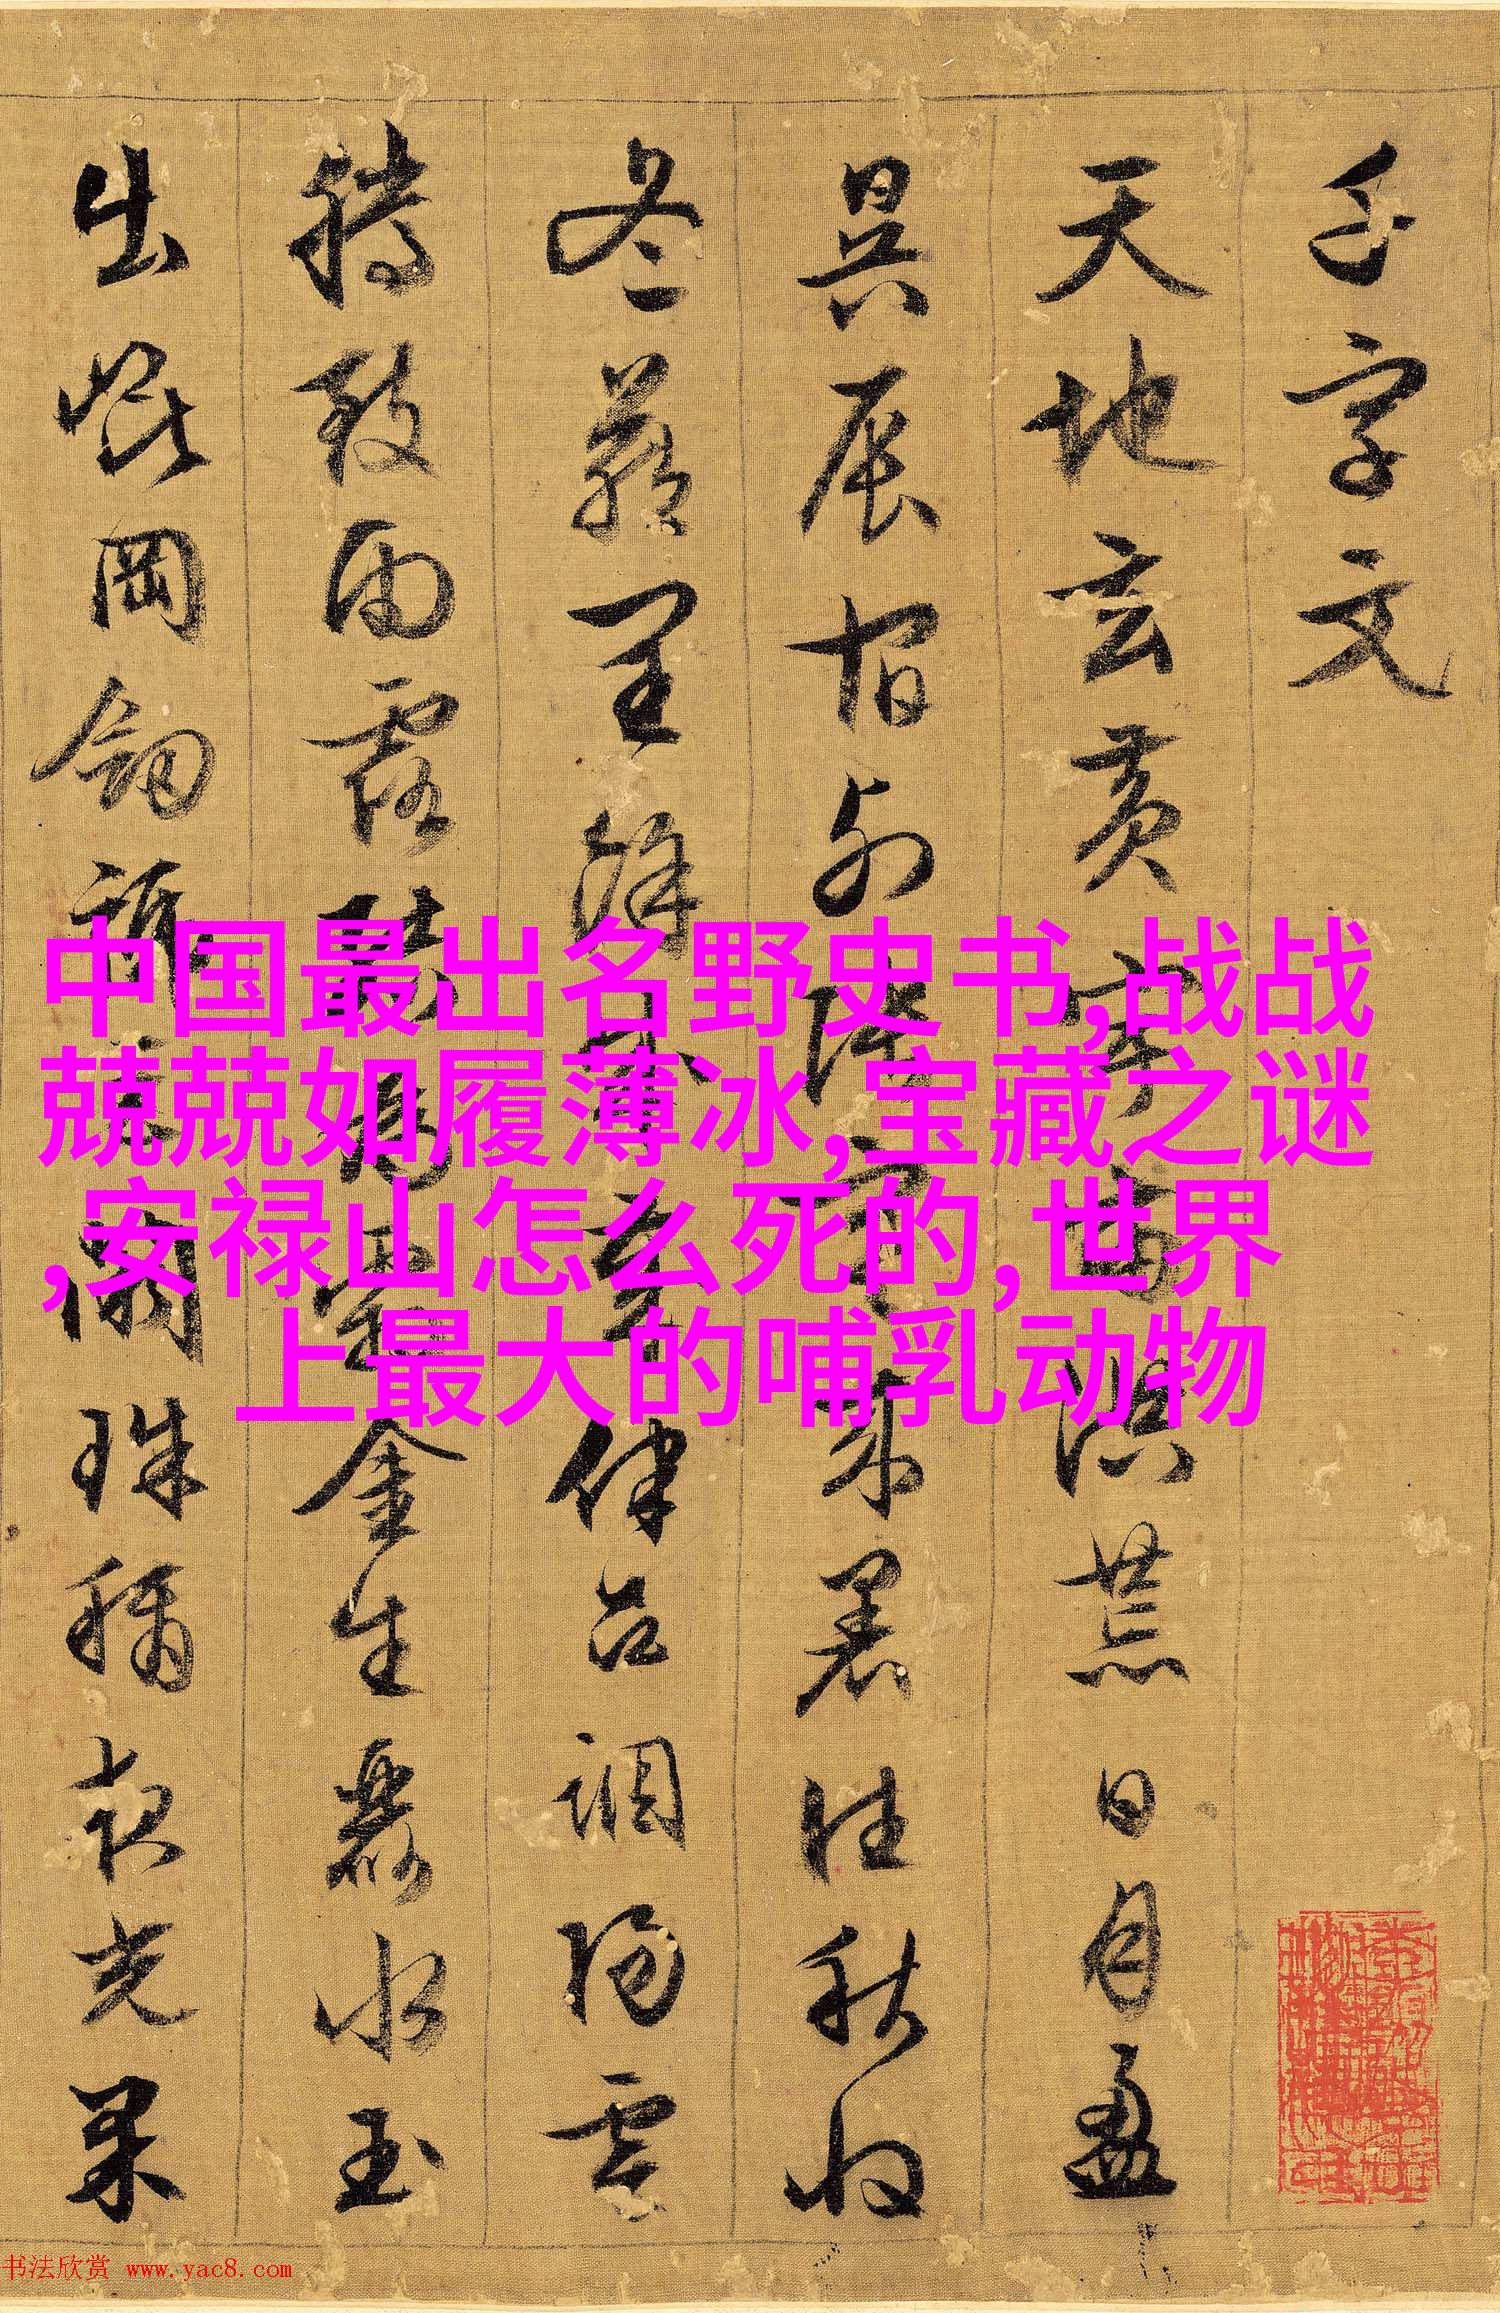 千字文
天地玄黄宇宙洪荒日月盈
昃辰宿列張寒来暑往秋收
冬蔵閏餘成歳律吕調陽雲
騰致雨露結為霜金生麗水玉
出崑岡劔號巨闕珠稱夜光果
中国最出名野史书,战战
兢兢如履薄冰,宝藏之谜
,安禄山怎么死的,世界
上最大的哺乳动物
书法欣赏 www.yac8.com